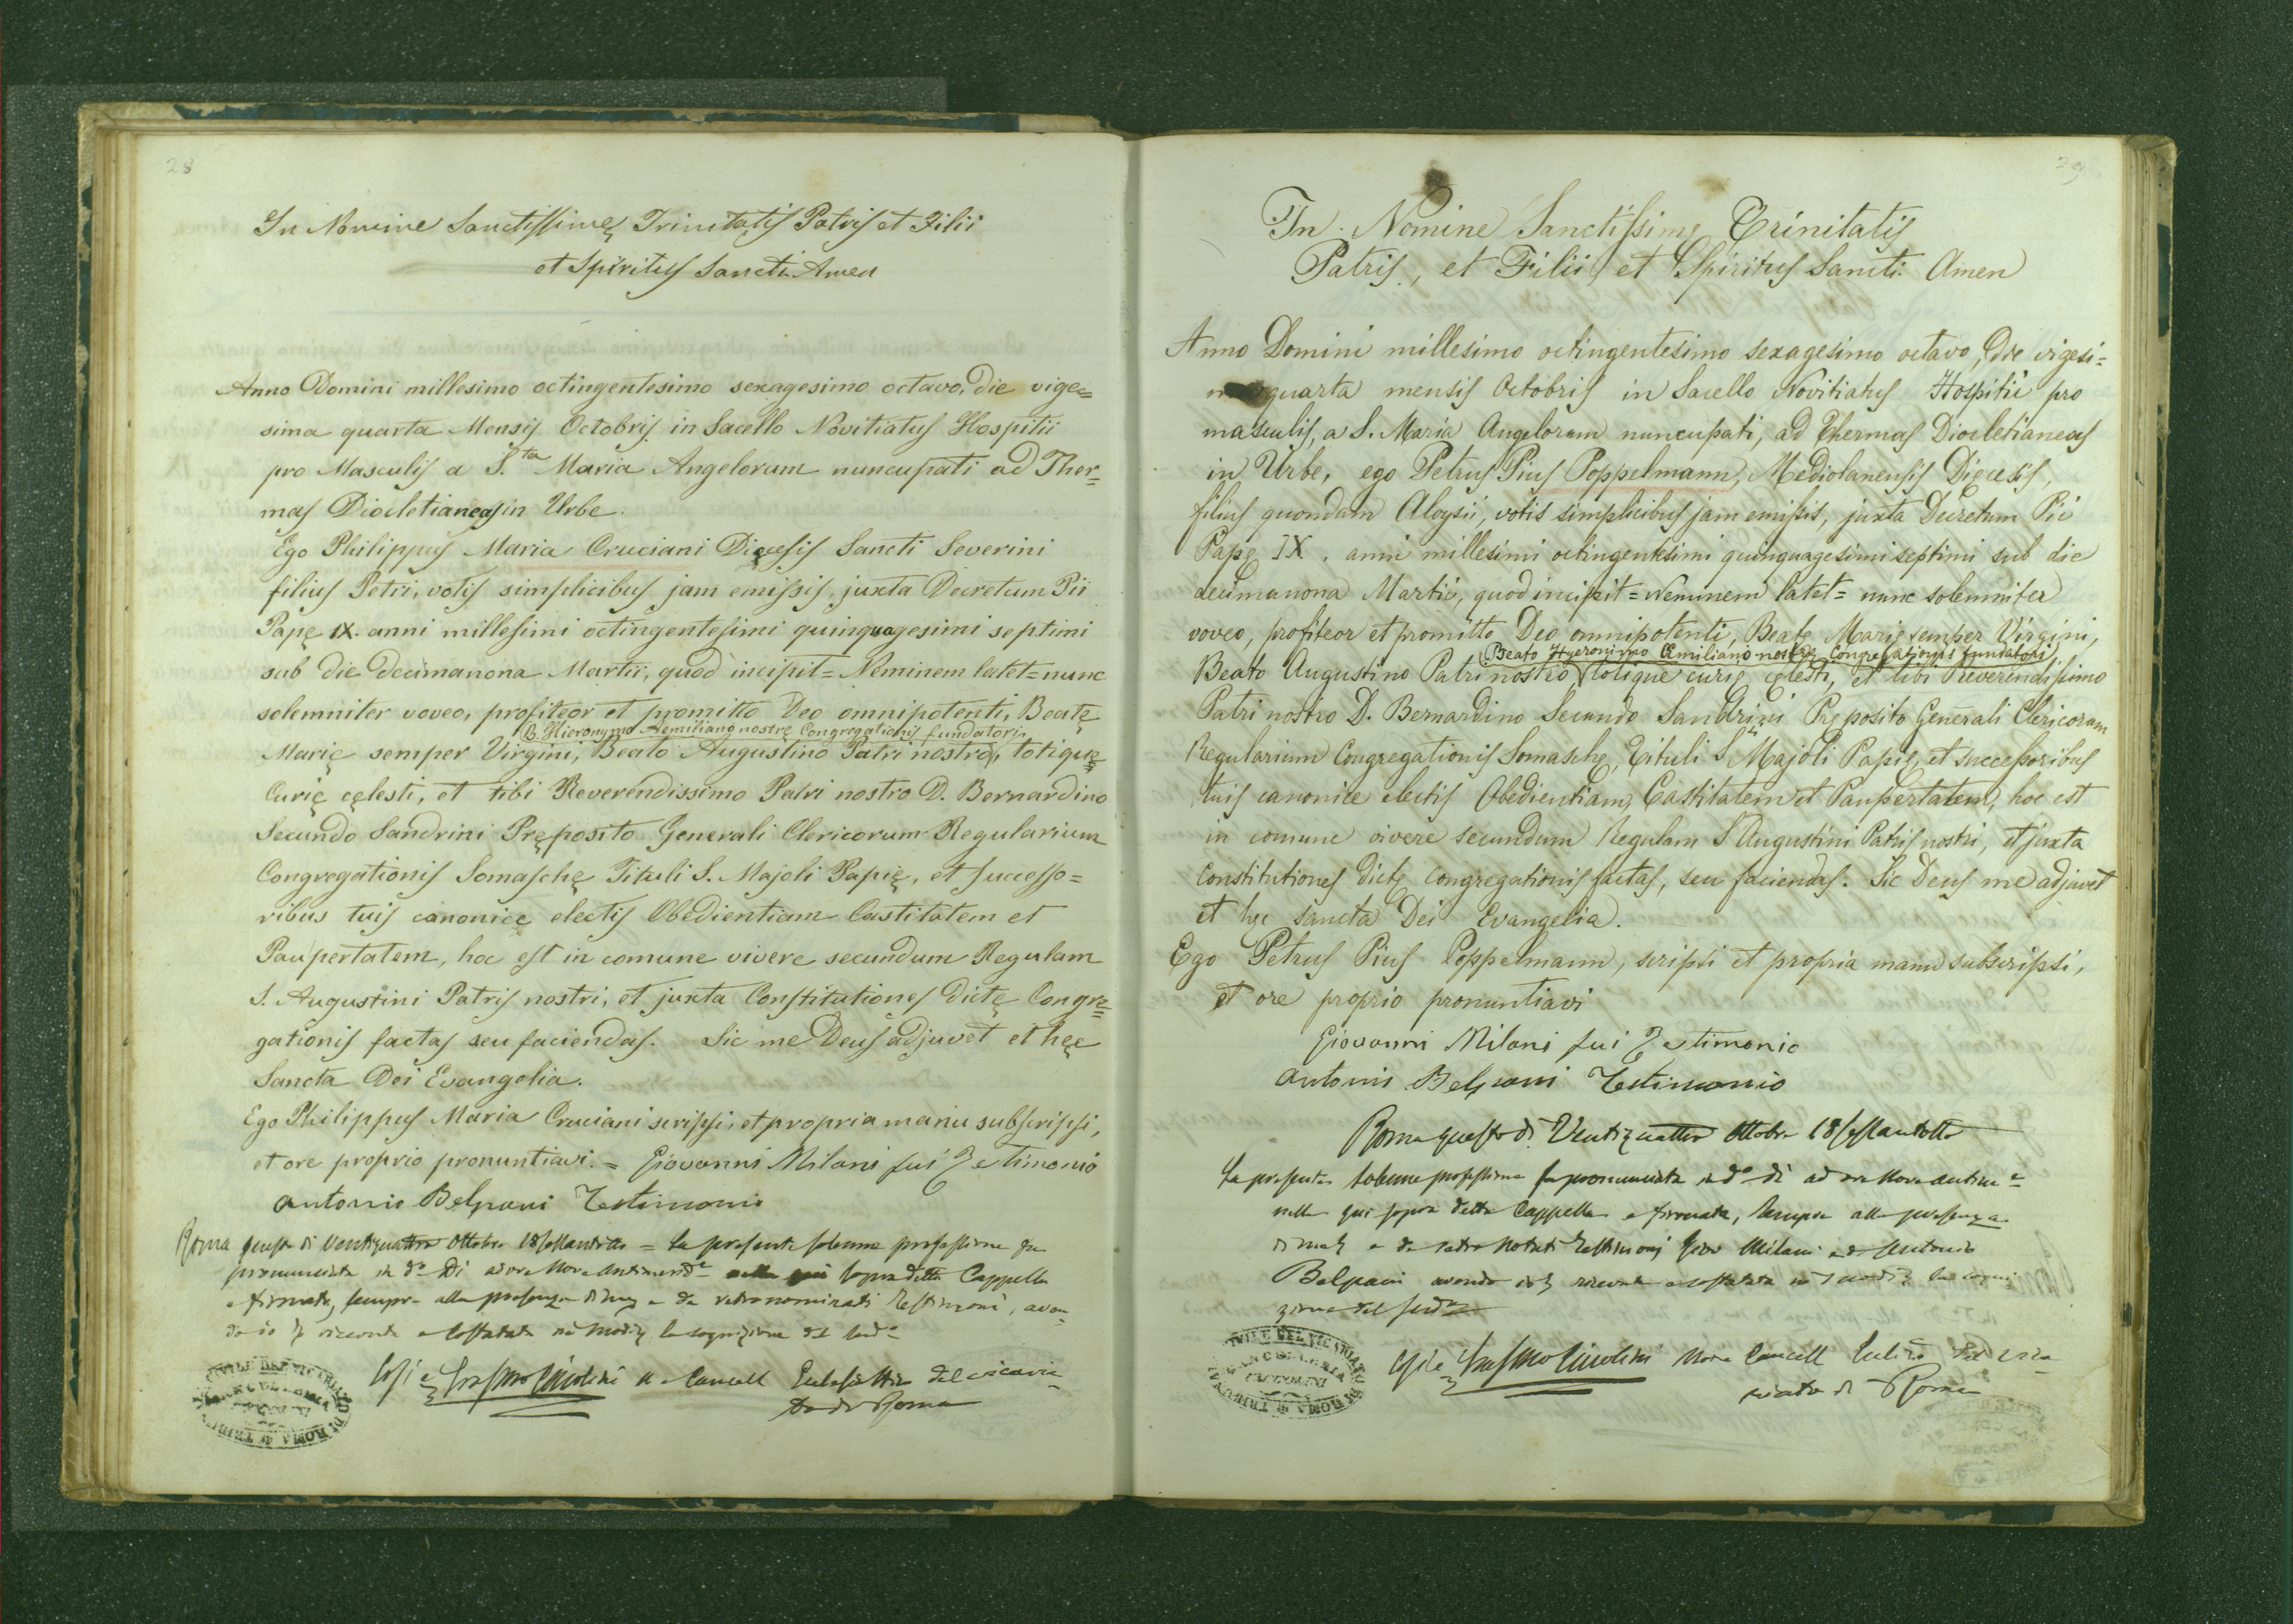 28
In Nomine Sanctissimę Trinitatis Patris et Filii
et Spiritus Sancti Amen
Anno Domini millesimo octingentesimo sexagesimo octavo, die vige=
sima quarta Mensis Octobris in Sacello Novitiatus Hospitii
pro Masculis a S.ta Maria Angelorum nuncupati ad Ther=
mas Diocletianeas in Urbe.
Ego Philippus Maria Cruciani Dięcesis Sancti Severini
filius Petri, votis simplicibus jam emissis, juxta Decretum Pii
Papę IX. anni millesimi octingentesimi quinquagesimi septimi
sub die decimanona Martii, quod incipit = Neminem latet = nunc
solemniter voveo, profiteor et promitto Deo omnipotenti, Beatę
B. Hieronymo Aemiliano nostrę Congregationis fundatori,
Marię semper Virgini, Beato Augustino Patri nostro, totique
Curię cęlesti, et tibi Reverendissimo Patri nostro D. Bernardino
Secundo Sandrini Pręposito Generali Clericorum Regularium
Congregationis Somaschę Tituli S. Majoli Papię, et successo=
ribus tuis canonice electis Obedientiam Castitatem et
Paupertatem, hoc est in comune vivere secundum Regulam
S. Augustini Patris nostri, et juxta Constitutiones dictę Congre=
gationis factas seu faciendas. Sic me Deus adjuvet et hęc
Sancta Dei Evangelia.
Ego Philippus Maria Cruciani scripsi, et propria manu subscripsi,
et ore proprio pronuntiavi. = Giovanni Milani fui Testimonio
Antonio Belpani Testimonio
Roma questo dì Ventiquattro Ottobre 18sessantotto = La presente solenne professione fu
pronunciata in do Dì ad ore nove antimeride sopra detta Cappella
e firmata, sempre alla presenza di me e da retronominati Testimoni, aven
do io ricevuta e constatata la cognizione del
Così e Erasmo Ciccolini Cancell Ecclesiastico del vicaria
to di Roma
29
In Nomine Sanctissimę Trinitatis
Patris, et Filii, et Spiritus Sancti. Amen
Anno Domini millesimo octingentesimo sexagesimo octavo, die vigesi=
ma quarta mensis Octobris in Sacello Novitiatus Hospitii pro
masculis, a S. Maria Angelorum nuncupati, ad Thermas Diocletianeas
in Urbe, ego Petrus Pius Poppelmann, Mediolanensis Dięcesis,
filius quondam Aloysii, votis simplicibus jam emissis, juxta Decretum Pii
Papę IX. anni millesimi octingentesimi quinquagesimi septimi sub die
decimanona Martii, quod incipit = Neminem latet = nunc solemniter
voveo, profiteor et promitto Deo omnipotenti, Beatę Marię semper Virgini,
Beato Hyeronimo Emiliano nostrę Congregationis fundatori
Beato Augustino Patri nostro totique curię cęlesti, et tibi Reverendissimo
Patri nostro D. Bernardino Secundo Sandrini Pręposito Generali Clericorum
Regularium Congregationis Somaschę, Tituli S. Majoli Papię, et successoribus
tuis canonice electis Obedientiam, Castitatem et Paupertatem, hoc est
in comune vivere secundum Regulam S. Augustini Patris nostri, et juxta
Constitutiones dictę Congregationis factas, seu faciendas. Sic Deus me adjuvet
et hęc sancta Dei Evangelia.
Ego Petrus Pius Poppelmann, scripsi et propria manu subscripsi,
et ore proprio pronuntiavi
Giovanni Milani fui Testimonio
Antonio Belpani Testimonio
Roma questo dì Ventiquattro Ottobre 18sessantotto
La presente solenne professione fu pronunciata in do dì ad ore nove antime
nella qui sopra detta Cappella e firmata, sempre alla presenza
di me e da retro notati Testimonj Giov Milani e di Antonio
Belpani avendo io ricevuta e constatata la cogni
zione del
Così e Erasmo Ciccolini Cancell del Vica
riato di Roma